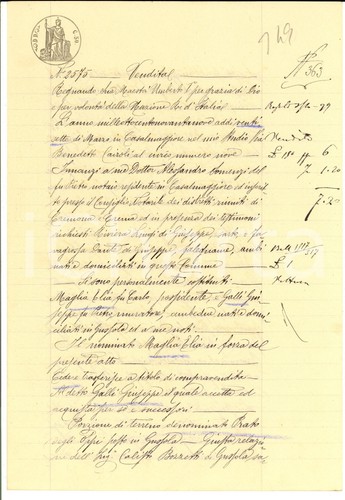 N. 2575 — Vendita
Regnando Sua Maestà Umberto I per grazia di Dio
e per volontà della Nazione Re d'Italia
L'anno milleottocentonovantanove addì venti
otto di Marzo in Casalmaggiore nel mio Studio Via
Benedetto Cairoli al civico numero nove
Innanzi a me Dottor Alessandro
fu Pietro notaio residente in Casalmaggiore ed inscrit
to presso il Consiglio Notarile dei distretti riuniti di
Cremona e Crema ed in presenza dei testimoni
richiesti Luigi di Giuseppe
Sante di Giuseppe, falegname, ambi
nati e domiciliati in questo Comune
Si sono personalmente costituiti
Maglia Elia fu Carlo, possidente, e Galli Giu
seppe fu Pietro, muratore, ambedue nati e domi
ciliati in Gussola ed a me noti.
Il nominato Maglia Elia in forza del
presente atto
Cede e trasferisce a titolo di compravendita
Al detto Galli Giuseppe il quale accetta ed
acquista per sé e successori
Porzione di terreno denominato Prato
degli posto in Gussola — Giusta relazio
ne dell'Ing. Calisto di Gussola
149
N. 363
Vendita
£ 180 6
1.20
7.20